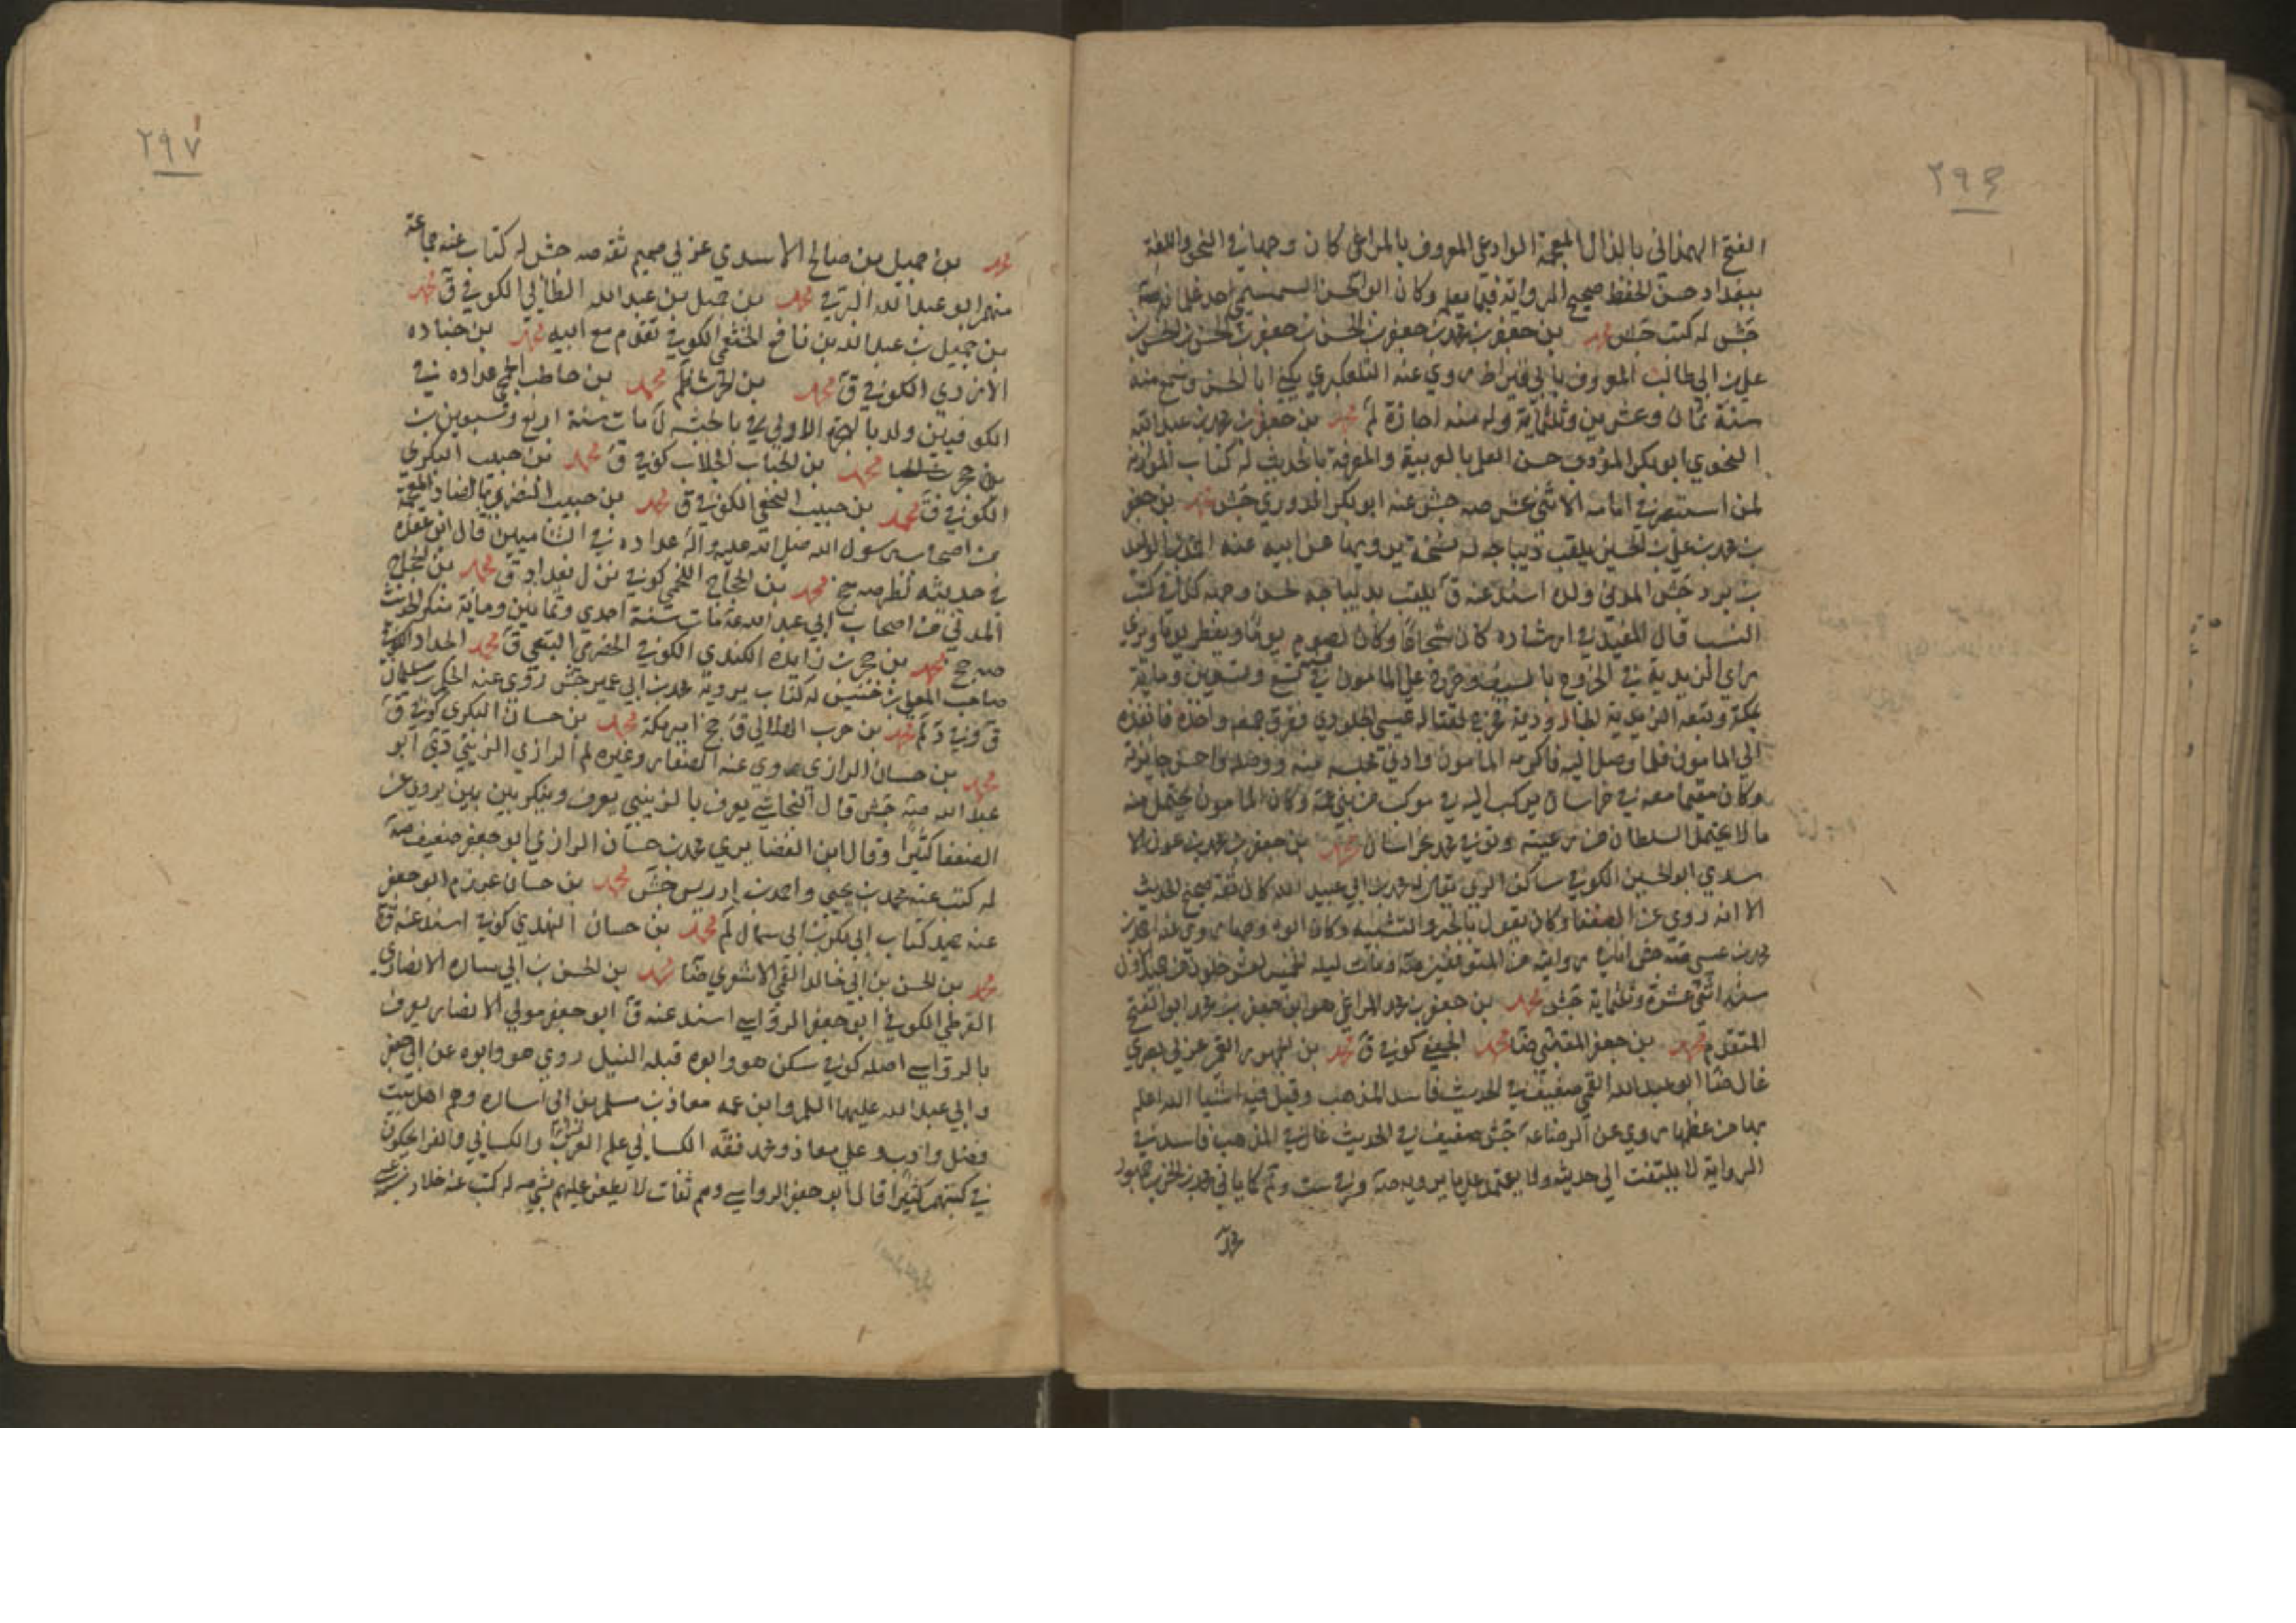 ٢٩٦
الفتح الهمداني بالذال المعجمة الوادعي المعروف بالمراغي كان وجها في النحو واللغة
ببغداد حسن الحفظ صحيح الرواية فيما يعلم وكان ابو الحسن السمسمي احد غلمانه صه
جش له كتب جش محمد بن جعفر بن محمد بن جعفر بن الحسن بن جعفر بن الحسن بن الحسن بن
علي بن ابي طالب المعروف بابي قيراط روي عنه التلعكبري يكني ابا الحسن وسمع منه
سنة ثمان وعشرين وثلثماية وله منه اجازة لم محمد بن جعفر بن محمد بن عبد الله
النحوي ابو بكر المؤدب حسن العلم بالعربية والمعرفة بالحديث له كتاب الموازنة
لمن استبصر في امامه الاثني عشر صه جش عنه ابو بكر الدوري جش محمد بن جعفر
بن محمد بن علي بن الحسين يلقب ديباجه له نسخة يرويها عن ابيه عنه
بن برد جش المدني ولده اسند عنه ق يلقب بديباجه لحسن وجهه كذا في كتب
النسب قال المفيد في ارشاده كان شجاعا وكان يصوم يوما ويفطر يوما ويري
راي الزيدية في الخروج بالسيف وخرج علي المامون في سنة تسع وتسعين وماية
بمكة وتبعه الزيدية الجارودية فخرج لقتاله عيسي الجلودي ففرق جمعه واخذه فانفذه
الي المامون فلما وصل اليه فاكرمه المامون وادني مجلسه منه ووصله واحسن جايزته
وكان مقيما معه في خراسان يركب اليه في موكب من بني عمه وكان المامون يحتمل منه
ما لا يحتمل السلطان من رعيته وتوفي محمد بخراسان محمد بن جعفر بن محمد بن عون الا
سدي ابو الحسين الكوفي ساكن الري يقال له محمد بن ابي عبد الله كان ثقة صحيح الحديث
الا انه روي عن الضعفا وكان يقول بالجبر والتشبيه وكان ابوه وجها روي عنه احمد بن
محمد بن عيسي صه جش انا في روايته من المتوقفين صه ومات ليلة الخميس لعشر خلون من جمادي الاول
سنة اثني عشرة وثلثماية جش محمد بن جعفر بن محمد المراغي هو ابن جعفر بن محمد ابو الفتح
المتقدم محمد بن جعفر المقنبي ضا محمد الجعفي كوفي ق محمد بن جمهور العمي عربي بصري
غال ضا ابو عبد الله القمي ضعيف في الحديث فاسد المذهب وقيل فيه اشيا الله اعلم
بها من عظمها روي عن الرضا ع جش ضعيف في الحديث غال في المذهب فاسد في
الرواية لا يلتفت الي حديثه ولا يعتمد علي ما يرويه صه
محمد
٢٩٧
محمد بن جميل بن صالح الاسدي عربي صميم ثقة صه جش له كتاب عنه جماعة
منهم ابو عبد الله البرقي محمد بن جميل بن عبد الله الطائي الكوفي ق محمد
بن جميل بن عبد الله بن نافع الخثعمي الكوفي تقدم مع ابيه محمد بن جناده
الازدي الكوفي ق محمد بن الحرث لم محمد بن حاطب الجمحي عداده في
الكوفيين ولد بالهجرة الاولي في بالحبشه ل مات سنة اربع وسبعين
بن حجر محمد بن الحباب الجلاب كوفي ق محمد بن حبيب البكري
الكوفي ق محمد بن حبيب النخعي الكوفي ق محمد بن حبيب النضري بالضاد المعجمة
من اصحاب رسول الله صلي الله عليه واله عداده في الشاميين قال ابن عقدة
في حديثه نظر صه جخ محمد بن الحجاج اللخمي كوفي نزل بغداد ق محمد بن الحجاج
المدني من اصحاب ابي عبد الله ع مات سنة احدي وثمانين وماية منكر الحديث
صه جخ محمد بن حجر بن زايدة الكندي الكوفي الحضرمي التبعي ق محمد الحداد الكوفي
صاحب المعلي بن خنيس له كتاب يرويه محمد بن ابي عمير جش روي عنه الحكم بن سليمان
ق محمد بن حرب الهلالي ق جخ امير مكة محمد بن حسان البكري كوفي ق
محمد بن حسان الرازي روي عنه الصفار وغيره لم الرازي الزينبي دي ابو
عبد الله صه جش قال النجاشي يعرف بالزينبي يعرف وينكر بين بين يروي عن
الضعفا كثيرا وقال ابن الغضايري محمد بن حسان الرازي ابو جعفر ضعيف صه
له كتب عنه محمد بن يحيي واحمد بن ادريس جش محمد بن حسان عرزم ابو جعفر
عنه حميد كتاب ابي بكر بن ابي سمال لم محمد بن حسان النهدي كوفي اسند عنه ق
محمد بن الحسن بن ابي خالد القمي الاشعري ضا محمد بن الحسن بن ابي ساره الانصاري
القرظي الكوفي ابو جعفر الرواسي اسند عنه ق ابو جعفر مولي الانصار يعرف
بالرواسي اصله كوفي سكن هو وابوه قبله النيل روي هو وابوه عن ابي جعفر
وابي عبد الله عليهما السلم وابن عمه معاذ بن مسلم بن ابي ساره وهم اهل بيت
فضل وادب وعلي معاذ ومحمد فقه الكسائي علم العرب والكسائي والفرا يحكون
في كتبهم كثيرا قال ابو جعفر الرواسي وهم ثقات لا يطعن عليهم بشي صه له كتب عنه خلاد